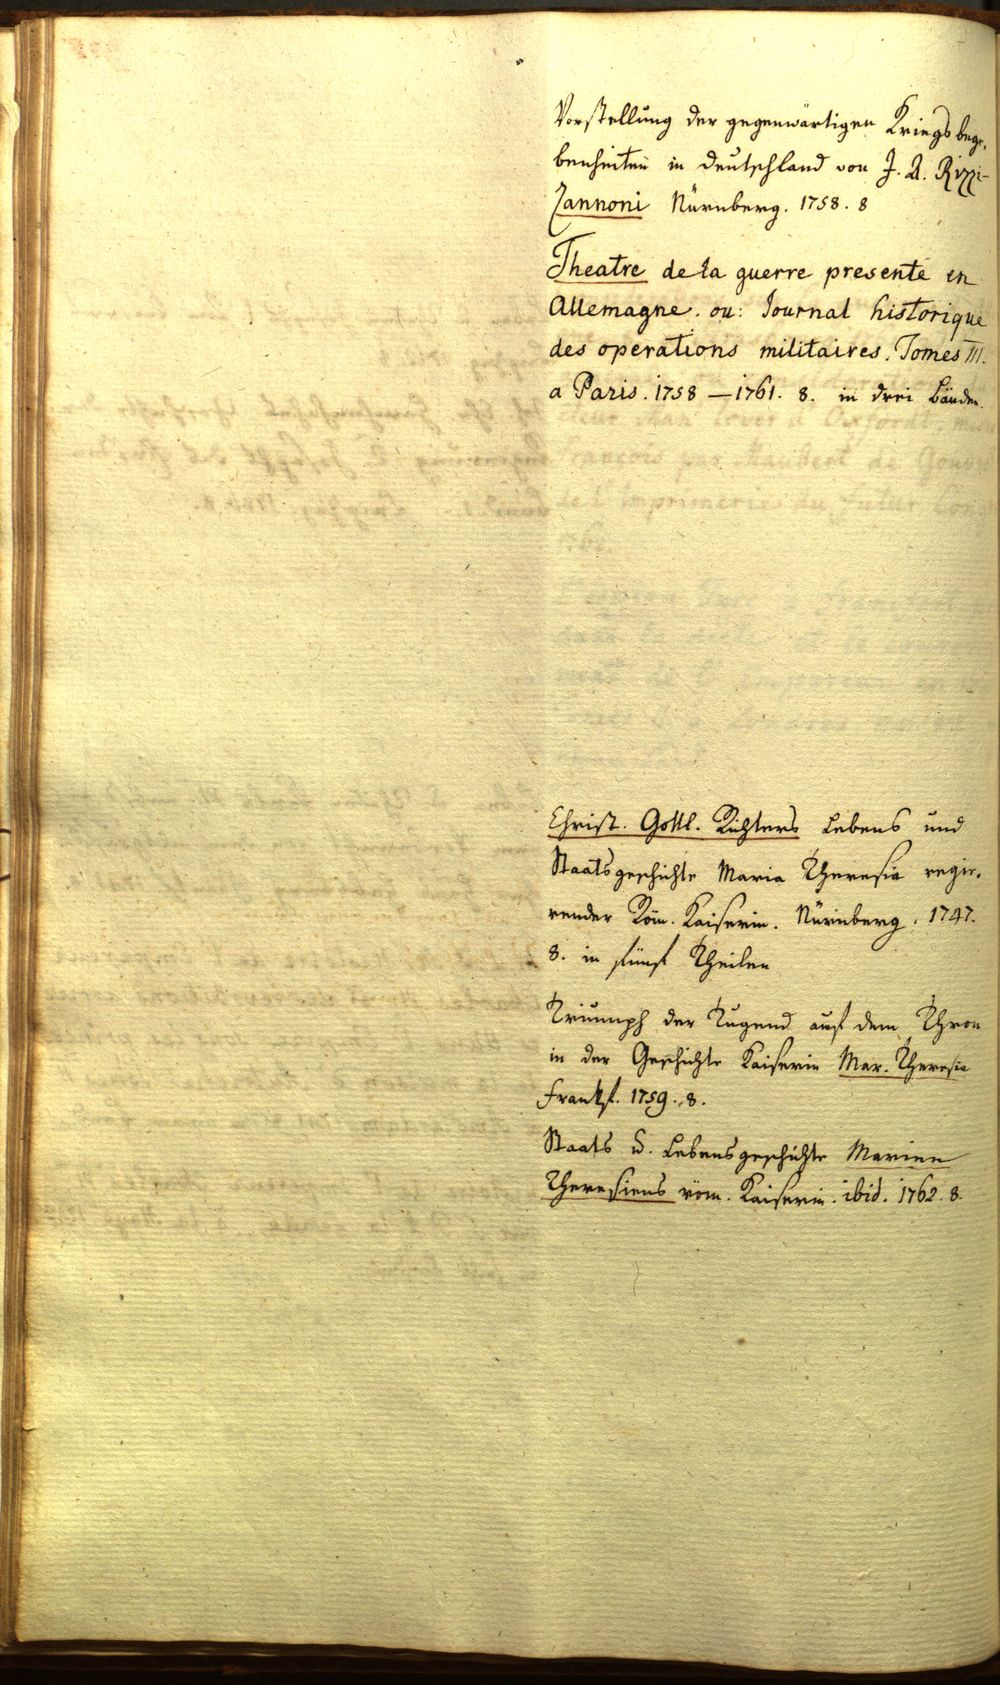 Vorstellung der gegenwärtigen Kriegsbege-
benheiten in Deutschland von J. A. Rizzi-
Zannoni Nürnberg. 1758. 8
Theatre de la guerre presente en
Allemagne. ou: Journal historique
des operations militaires. Tomes III.
a Paris. 1758 — 1761. 8. in drei Bänden.
Christ. Gottl. Richters Lebens und
Staatsgeschichte Maria Theresia regie-
render Röm. Kaiserin. Nürnberg. 1747.
8. in fünf Theilen
Triumph der Tugend auf dem Thron
in der Geschichte Kaiserin Mar. Theresia
Frankf. 1759. 8.
Staats u. Lebensgeschichte Marien
Theresiens röm. Kaiserin. ibid. 1762. 8.